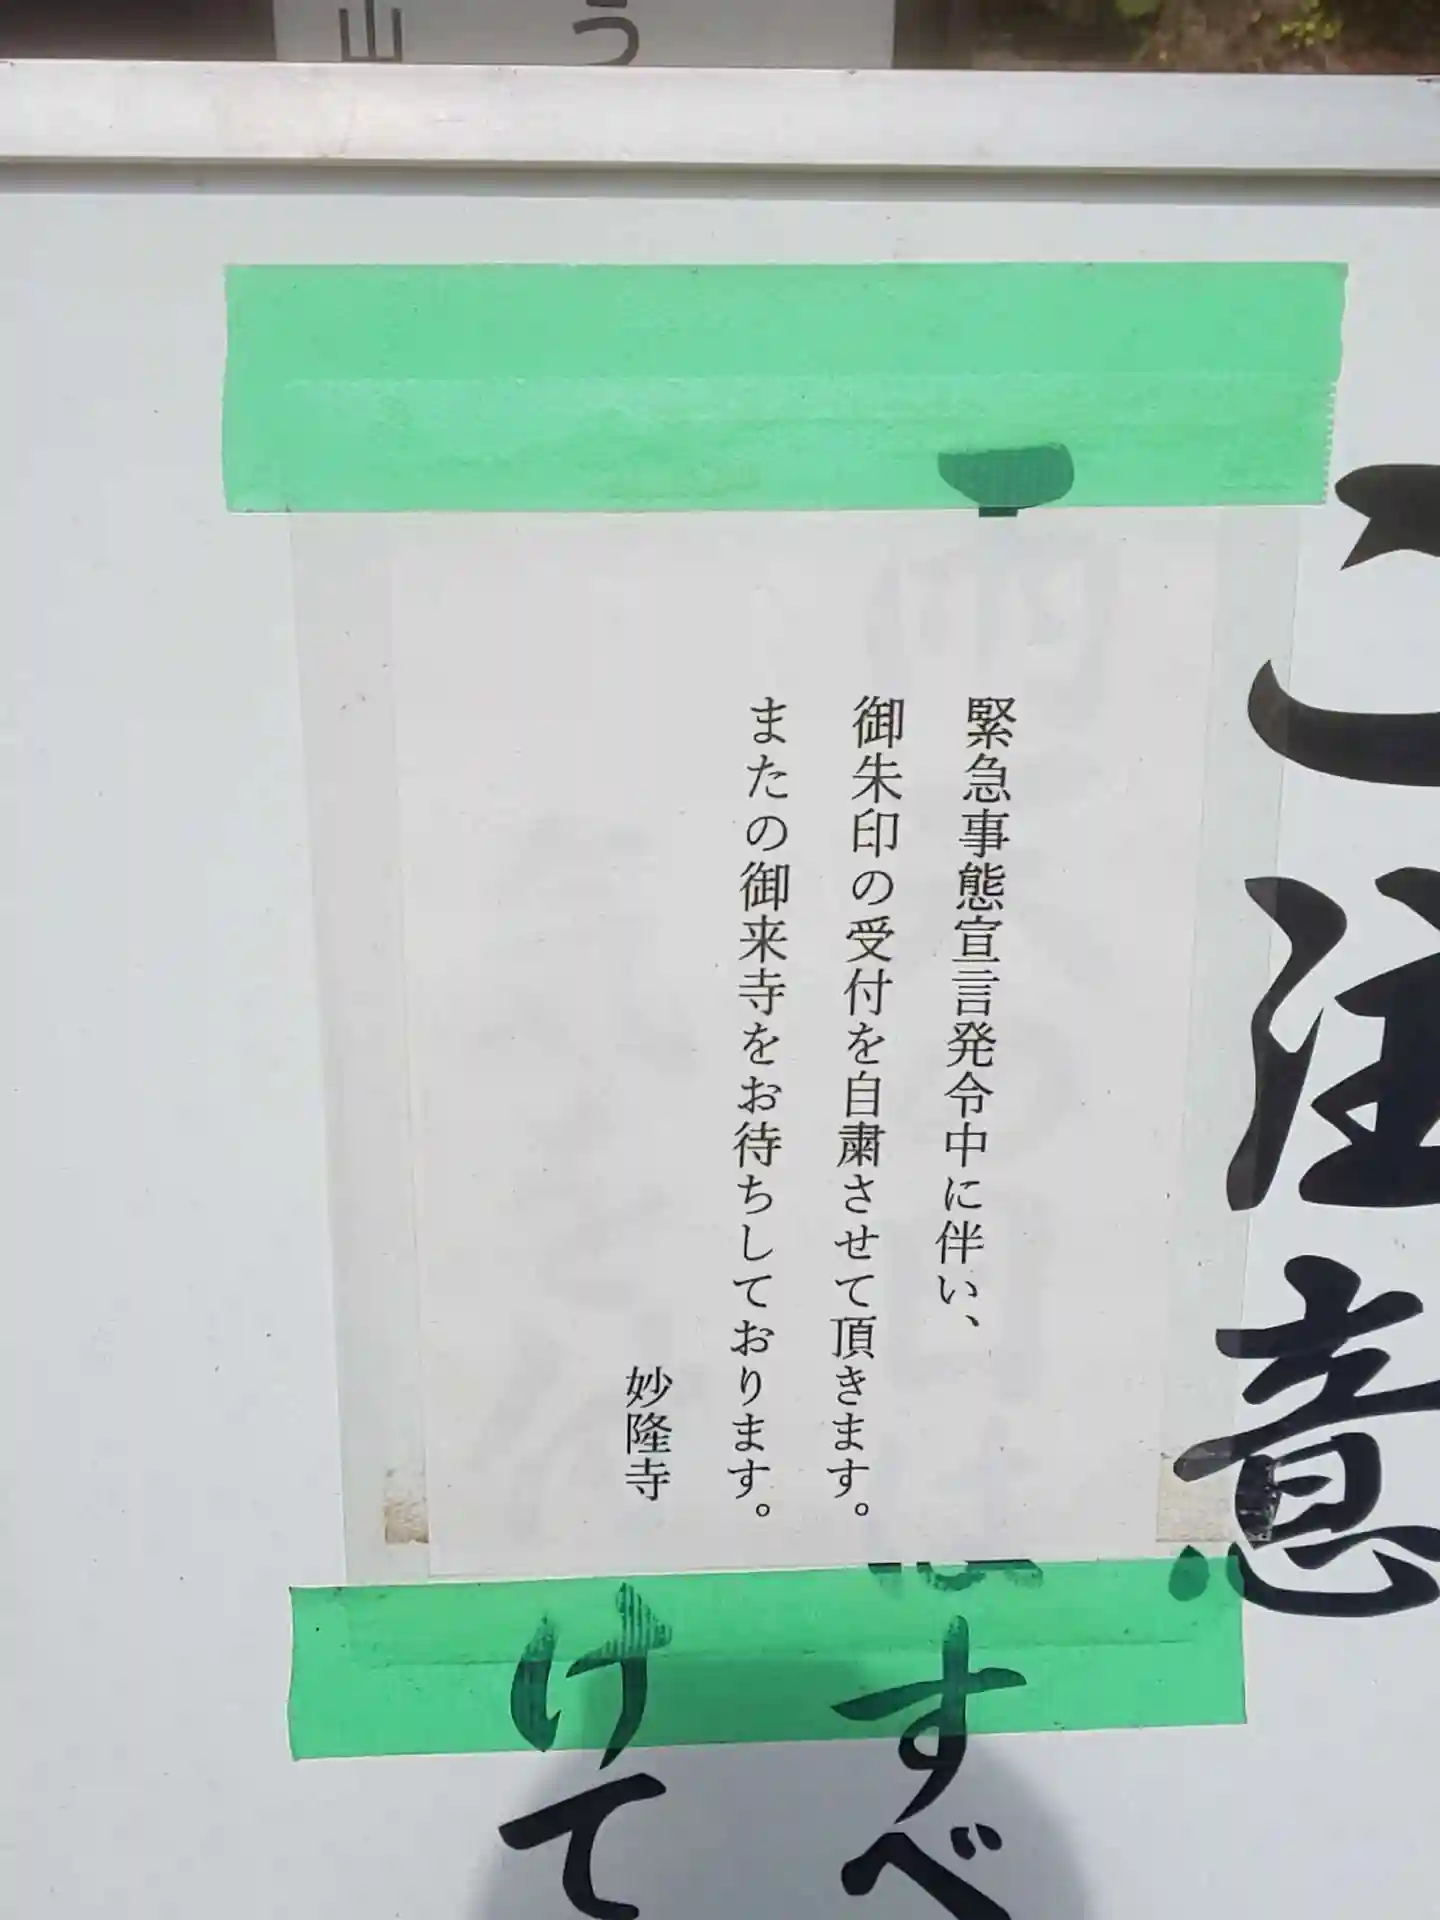 山
う
ご注意
緊急事態宣言発令中に伴い、
御朱印の受付を自粛させて頂きます。
またの御来寺をお待ちしております。
妙隆寺
すべ
けて